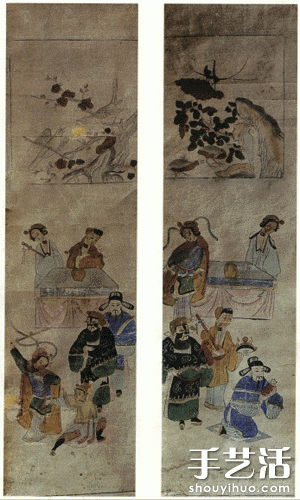 手艺活
shouyihuo.com